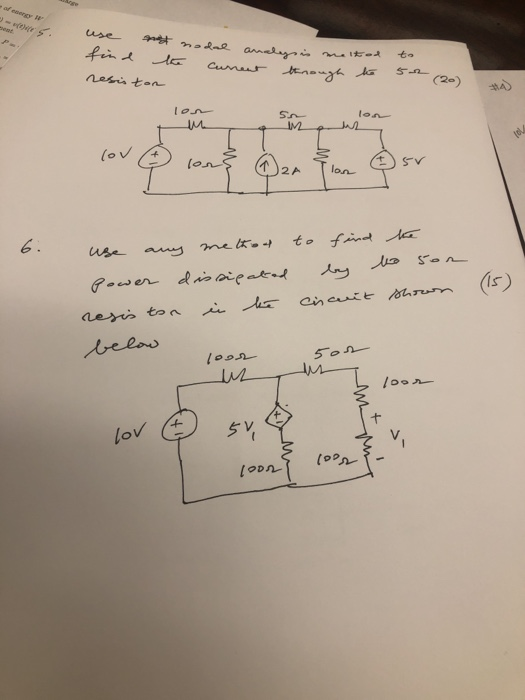 5. use nodal analysis method to
find the current through the 5Ω (20)
resistor
10Ω 5Ω 10Ω
10V + - 10Ω 2A 10Ω + - 5V
6. use any method to find the
power dissipated by the 50Ω
resistor in the circuit shown (15)
below
100Ω 50Ω
100Ω
10V + - 5V₁ + - + V₁ -
100Ω 100Ω
of energy W